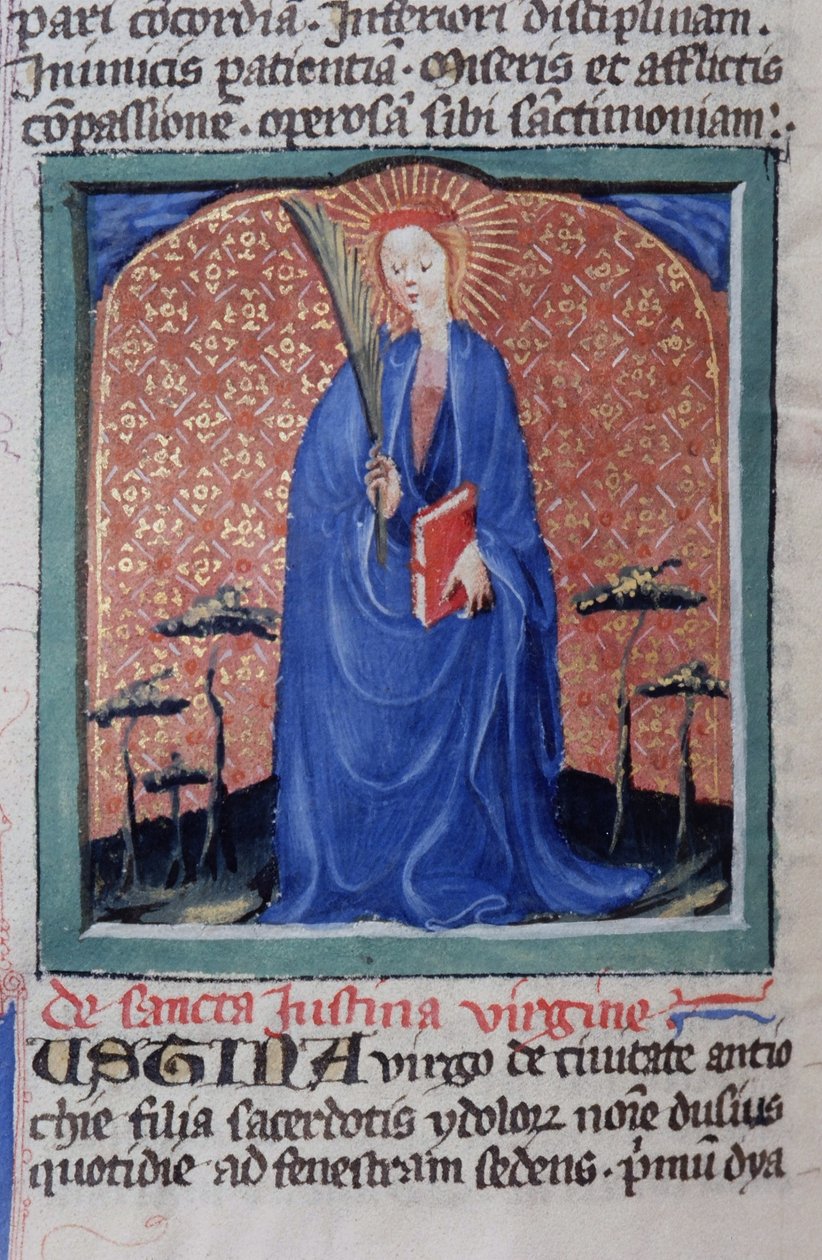 pari cōcordiā · Inferiori disciplinam ·
Inimicis patientiā · Miseris et afflictis
cōpassionē · operosā sibi sāctimoniam :·
de sancta Iustina virgine ·
USTINA virgo de ciuitate antio
chie filia sacerdotis ydoloꝝ noīe dusius
quotidie ad fenestram sedens · p̄mū dya